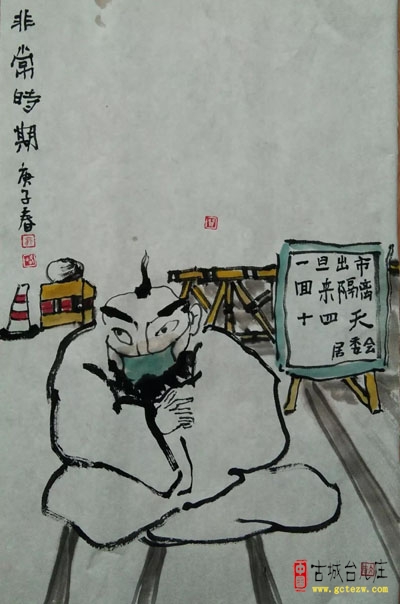 非常時期
庚子春
一旦出市
回来隔离
十四天
居委会
古城台儿庄
www.gctezw.com